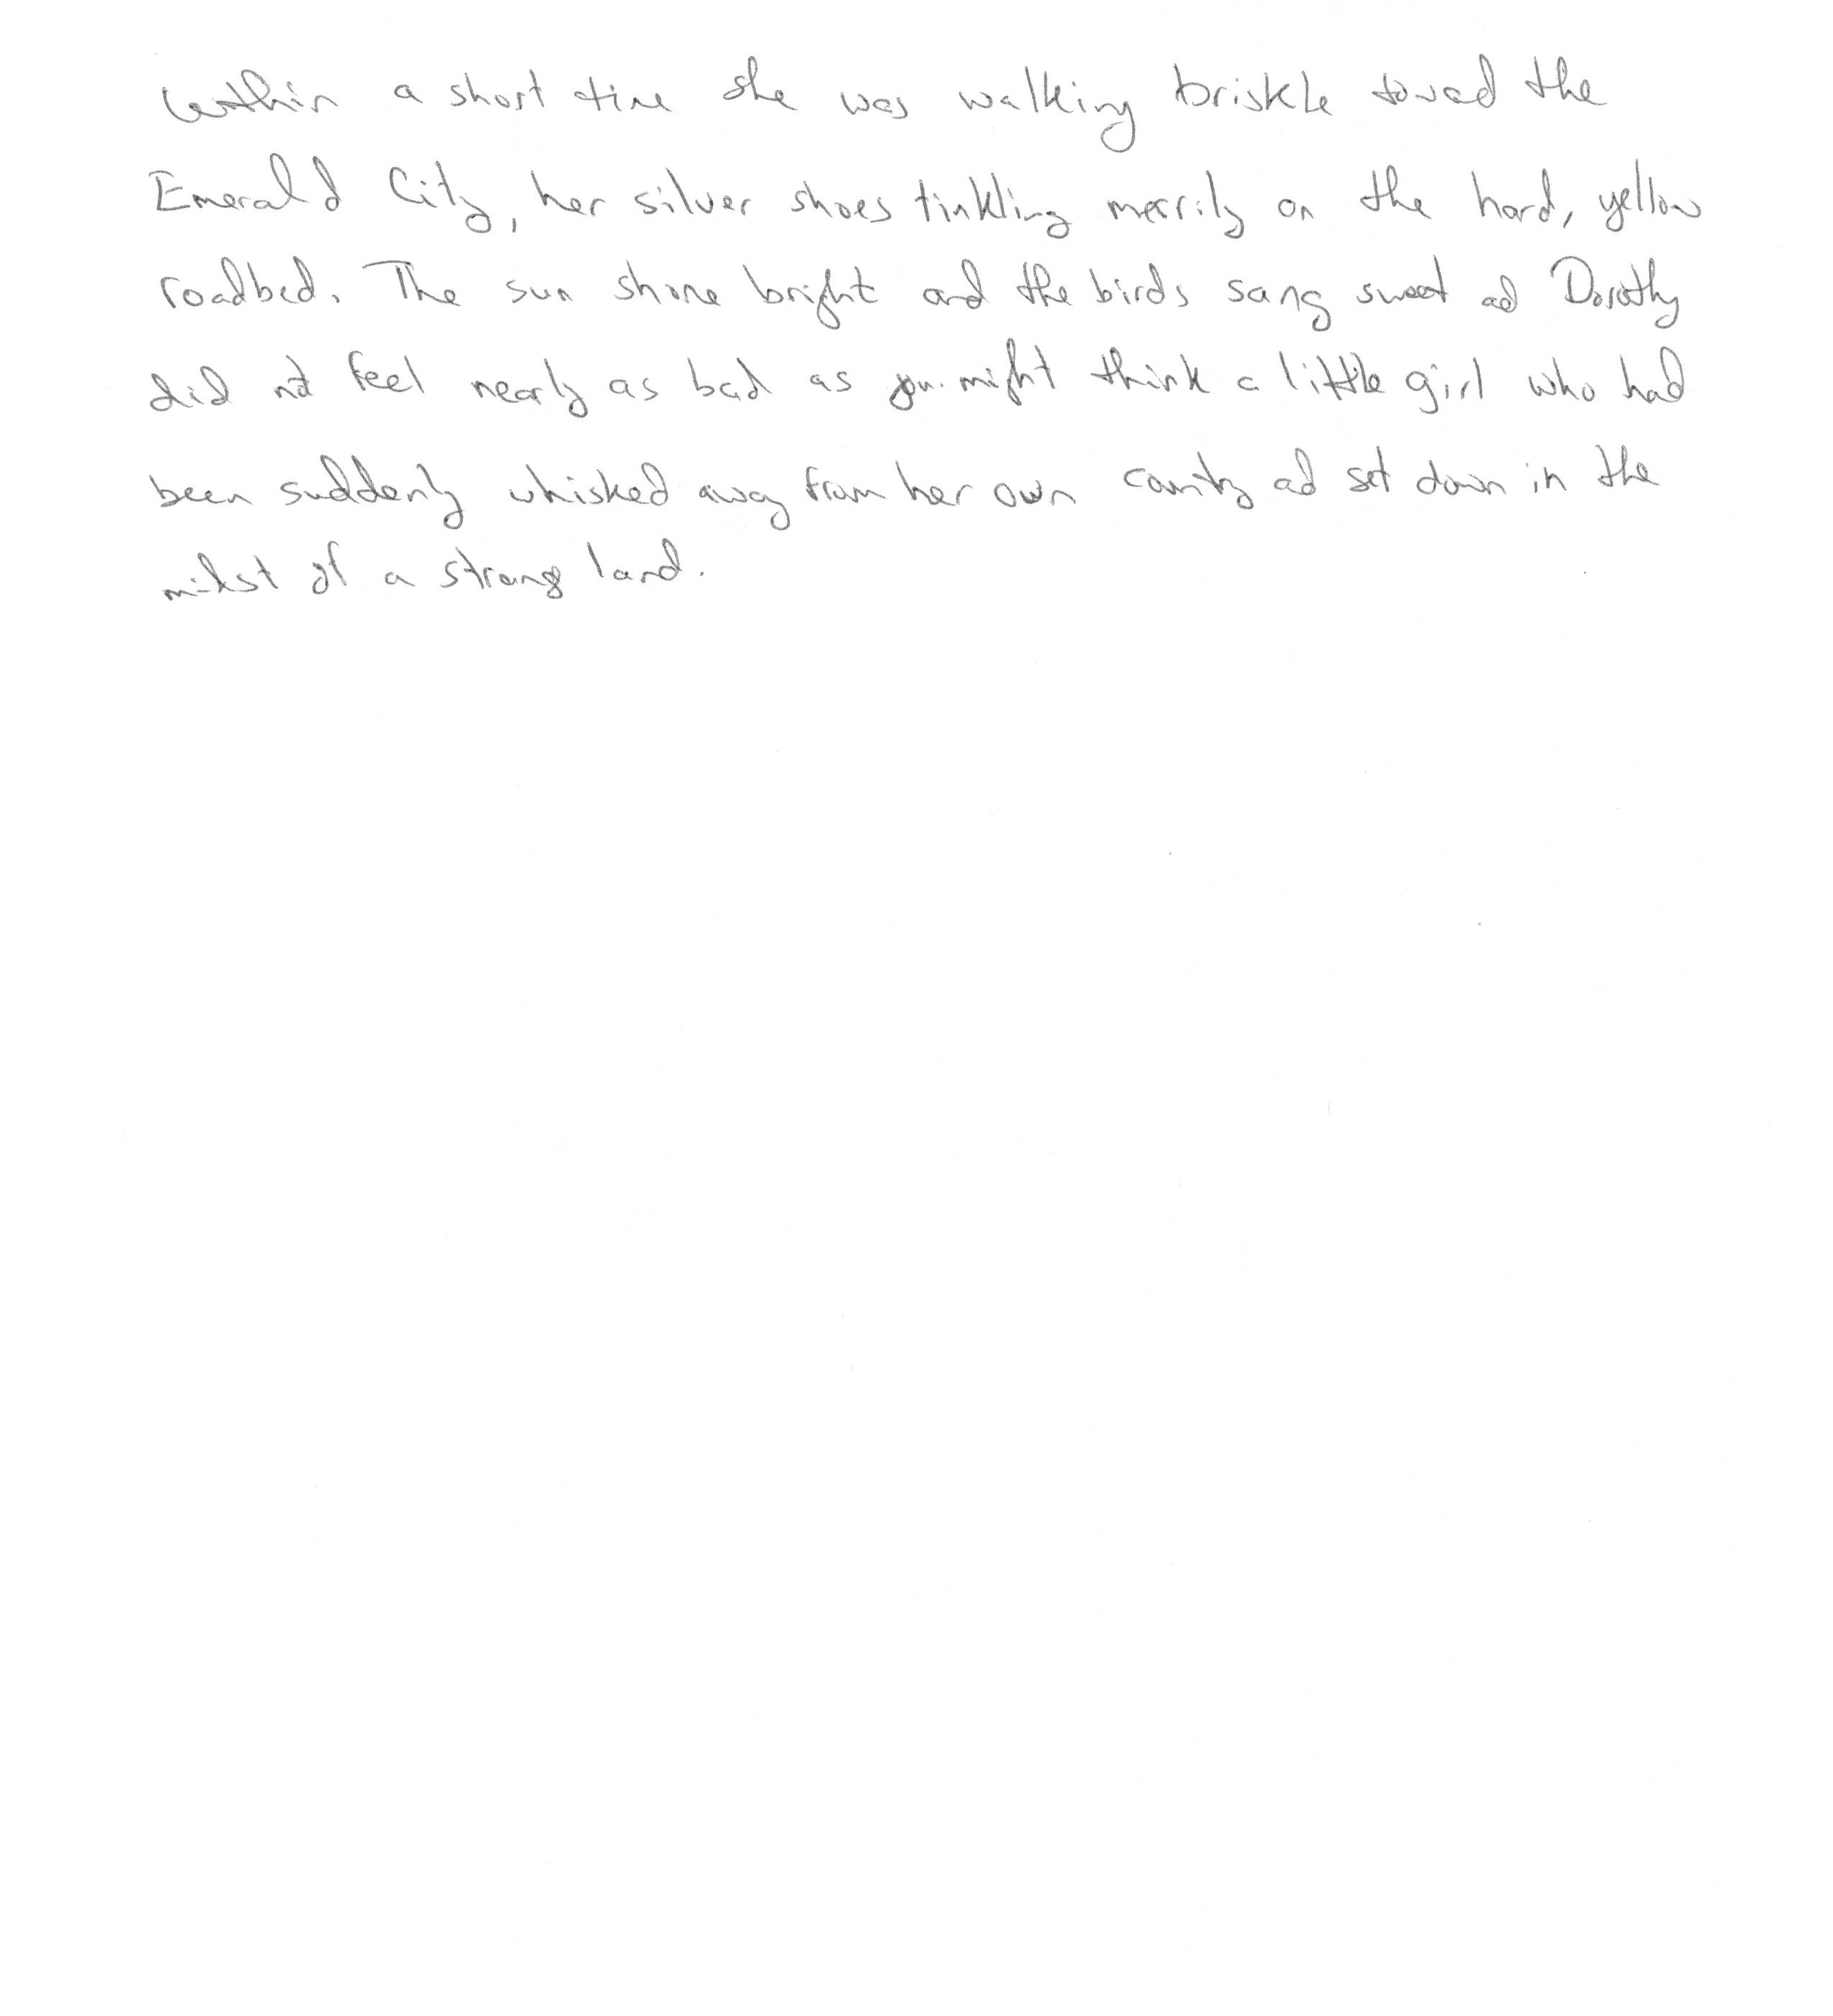 Within a short time she was walking briskle toward the
Emerald City, her silver shoes tinkling merrily on the hard, yellow
roadbed. The sun shone bright and the birds sang sweet ad Dorothy
did not feel nearly as bad as you might think a little girl who had
been suddenly whisked away from her own country ad set down in the
midst of a strang land.